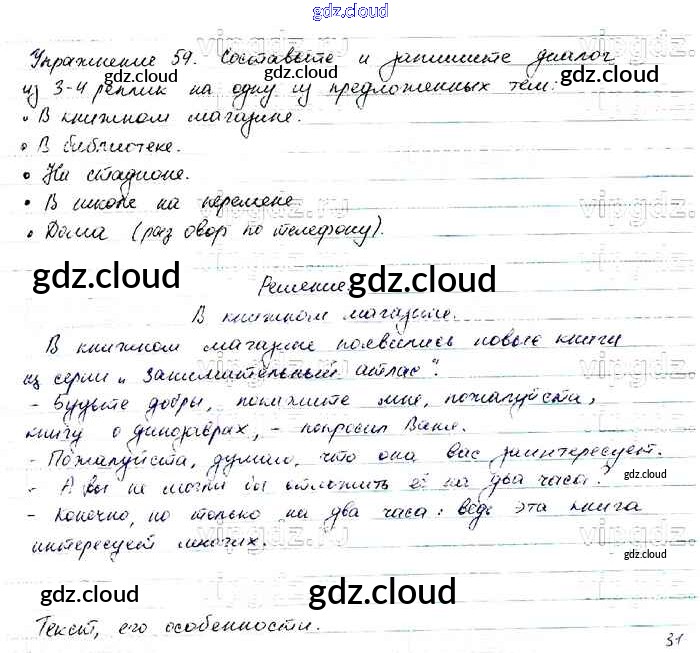 gdz.cloud
Упражнение 59. Составьте и запишите диалог
gdz.cloud gdz.cloud gdz.cloud
из 3-4 реплик на одну из предложенных тем:
• В книжном магазине.
• В библиотеке.
• На стадионе.
• В школе на перемене
• Дома (раз овор по телефону).
gdz.cloud gdz.cloud
Решение.
В книжном магазине.
В книжном магазине появились новые книги
из серии „Занимательный атлас".
- Будьте добры, покажите мне, пожалуйста,
gdz.cloud gdz.cloud
книгу о динозаврах, - попросил Ваня.
- Пожалуйста, думаю, что она вас заинтересует.
gdz.cloud
- А вы не могли бы отложить её на два часа?
- Конечно, но только на два часа: ведь эта книга
интересует многих.
gdz.cloud
gdz.cloud gdz.cloud gdz.cloud
Текст, его особенности.
31
vipgdz.ru
vipgdz.ru
vipgdz.ru
vipgdz.ru